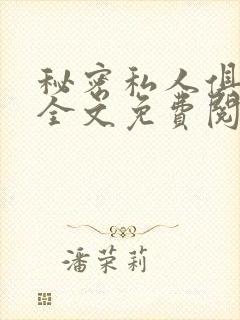 秘密私人俱
全文免費閱
潘荣莉